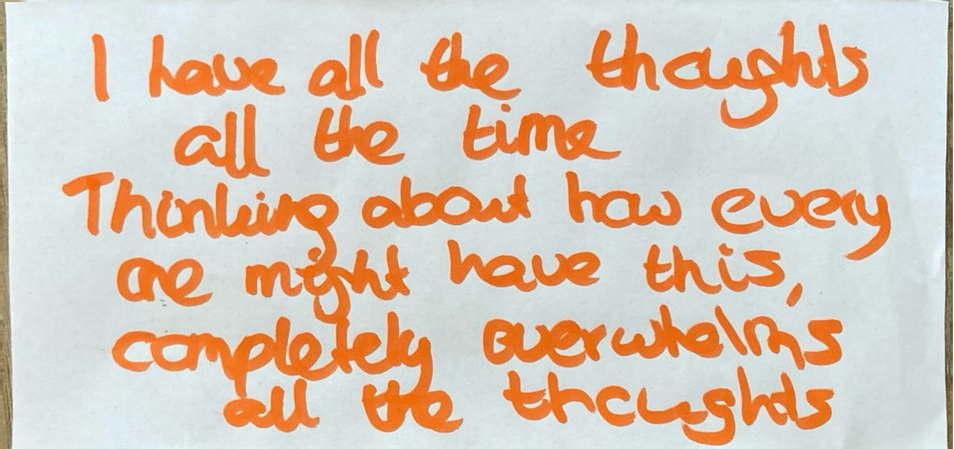 I have all the thoughts
all the time
Thinking about how every
one might have this,
completely overwhelms
all the thoughts